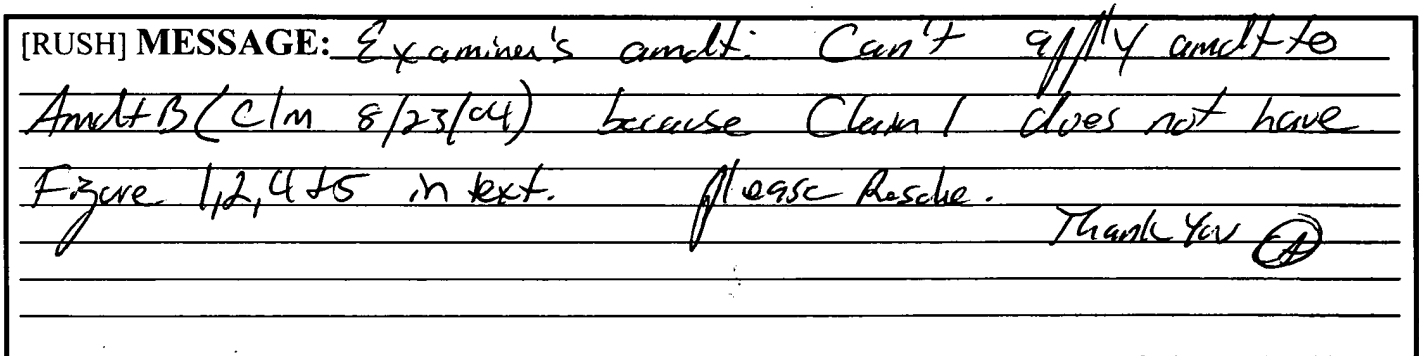 [RUSH] MESSAGE: Examiner's amdt: Can't apply amdt to
Amdt B (Clm 8/23/04) because Claim 1 does not have
Figure 1,2,4+5 in text. Please Resolve.
Thank You A